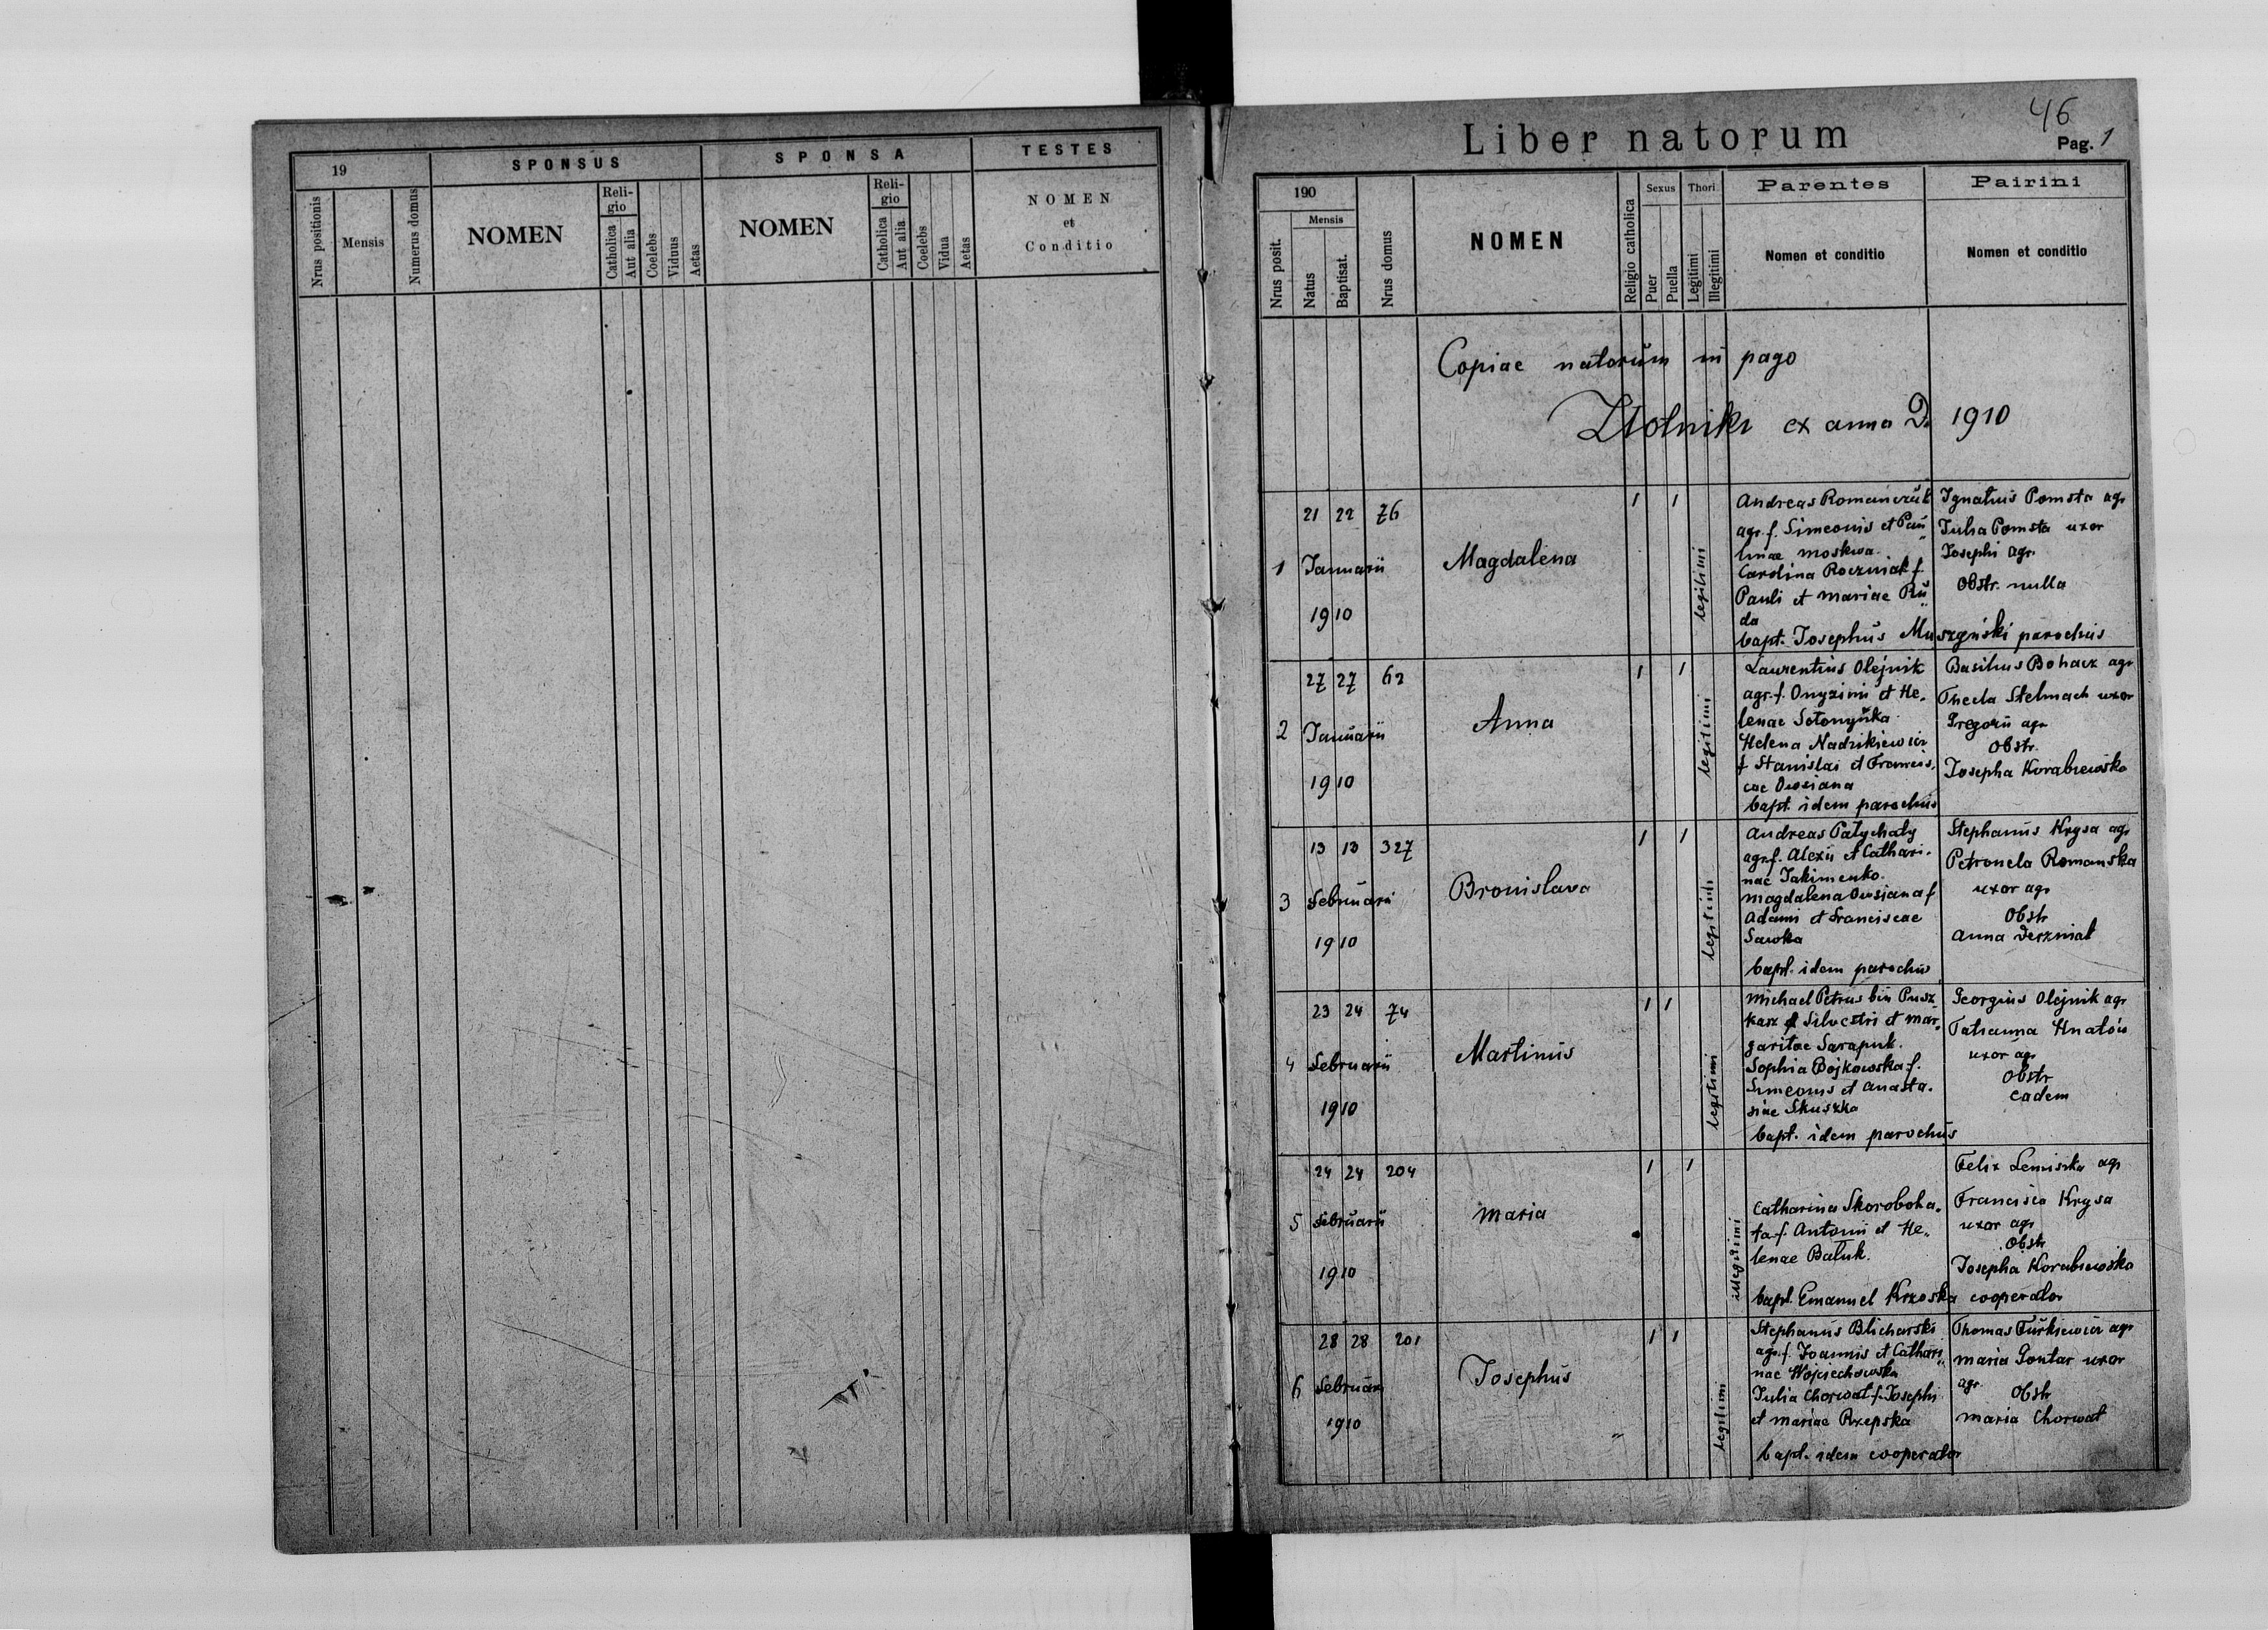 19
SPONSUS
SPONSA
TESTES
Nrus positionis
Mensis
Numerus domus
NOMEN
Religio
Catholica
Aut alia
Coelebs
Viduus
Aetas
NOMEN
Religio
Catholica
Aut alia
Coelebs
Vidua
Aetas
NOMEN
et
Conditio
46
Liber natorum
Pag. 1
190
Nrus posit.
Mensis
Natus
Baptisat.
Nrus domus
NOMEN
Religio catholica
Sexus
Puer
Puella
Thori
Legitimi
Illegitimi
Parentes
Nomen et conditio
Pairini
Nomen et conditio
Copiae natorum in pago
Złotniki ex anno D. 1910
1
21 22 76
Januarii
1910
Magdalena
1 1
legitimi
Andreas Romańczuk
agr. f. Simeonis et Pau„
linae Moskwa.
Carolina Roczniak f.
Pauli et Mariae Ru„
da
bapt. Josephus Muszyński parochus
Ignatius Pomsta agr
Julia Pomsta uxor
Josephi agr.
Obstr. nulla
2
27 27 62
Januarii
1910
Anna
1 1
legitimi
Laurentius Olejnik
agr. f. Onyzimi et He„
lenae Sotonyńka
Helena Nadzikiewicz
f Stanislai et Francis„
cae Owsiana
bapt. idem parochus
Basilius Bohacz agr
Thecla Stelmach uxor
Gregorii agr
Obstr.
Josepha Korabiewska
3
13 13 327
Februarii
1910
Bronislava
1 1
legitimi
Andreas Patychaty
agr. f. Alexii et Cathari„
nae Jakimenko.
Magdalena Owsiana f
Adami et Franciscae
Sawka
bapt. idem parochus
Stephanus Krysa agr
Petronela Romanska
uxor agr
Obstr
Anna Derzniat
4
23 24 74
Februarii
1910
Martinus
1 1
legitimi
Michael Petrus bin Pusz„
karz f Silvestri et Mar„
garitae Sarapuk.
Sophia Bojkowska f.
Simeonis et Anasta„
siae Skuszka
bapt. idem parochus
Georgius Olejnik agr
Tatianna Hnatów
uxor agr
Obstr
eadem
5
24 24 204
Februarii
1910
Maria
1 1
illegitimi
Catharina Skoroboha„
ta f. Antonii et He„
lenae Baluk.
bapt. Emanuel Krzoska cooperator
Felix Lemiszka agr
Francisca Krysa
uxor agr
Obstr
Josepha Korabiewska
6
28 28 201
Februarii
1910
Josephus
1 1
legitimi
Stephanus Blicharski
agr. f. Joannis et Cathari„
nae Wojciechowska
Julia Chorwat f. Josephi
et Mariae Rzepska
bapt. idem cooperator
Thomas Turkiewicz agr
Maria Gontar uxor
agr.
Obstr
Maria Chorwat